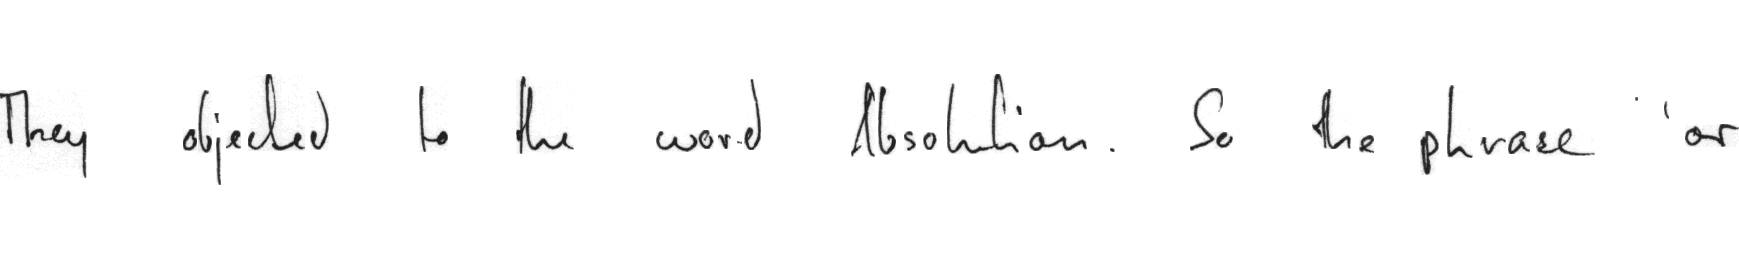 They objected to the word Absolution. So the phrase "or